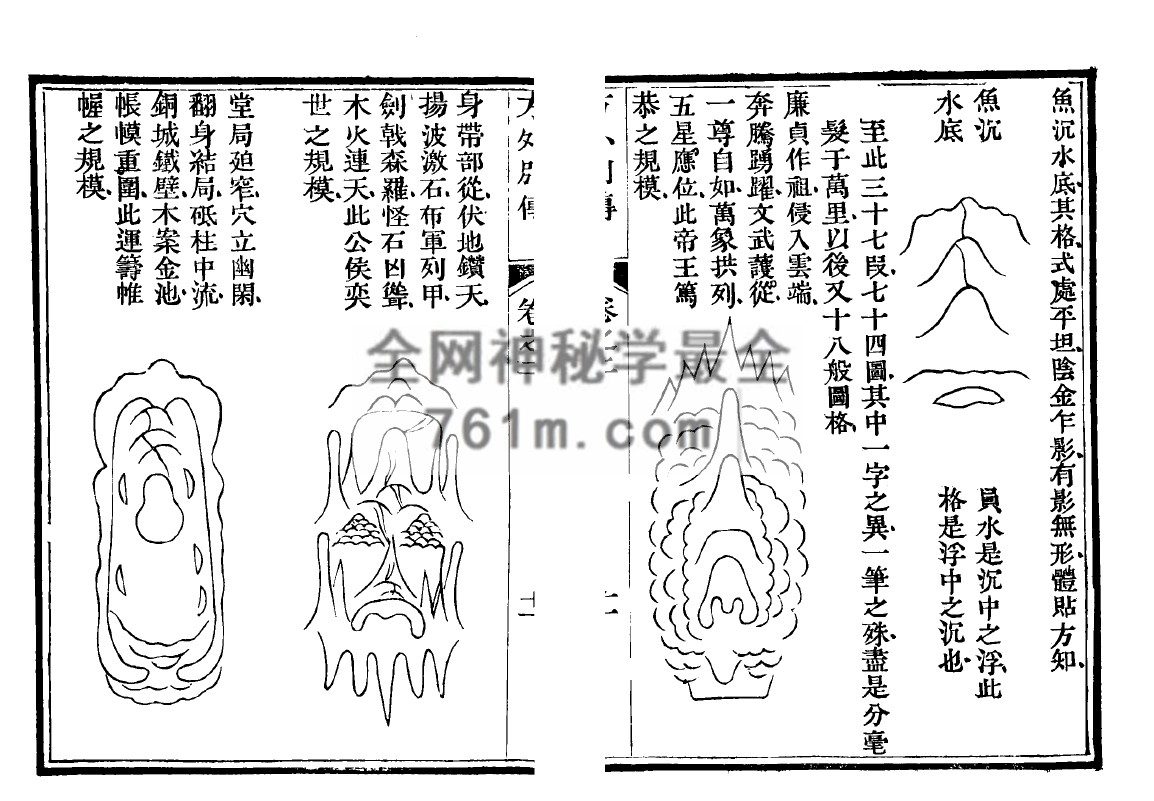 魚沉水底其格式處平坦陰金乍影有影無形體貼方知
魚沉
水底
員水是沉中之浮此
格是浮中之沉也
至此三十七段七十四圖其中一字之異一筆之殊盡是分毫
髮于萬里以後又十八般圖格
廉貞作祖侵入雲端
奔騰踴躍文武護從
一尊自如萬象拱列
五星應位此帝王篤
恭之規模
身帶部從伏地鑽天
揚波激石布軍列甲
劍戟森羅怪石凶聳
木火連天此公侯奕
世之規模
堂局廹窄穴立幽閑
翻身結局砥柱中流
銅城鐵壁木案金池
帳幙重圍此運籌帷
幄之規模
全网神秘学最全
761m.com